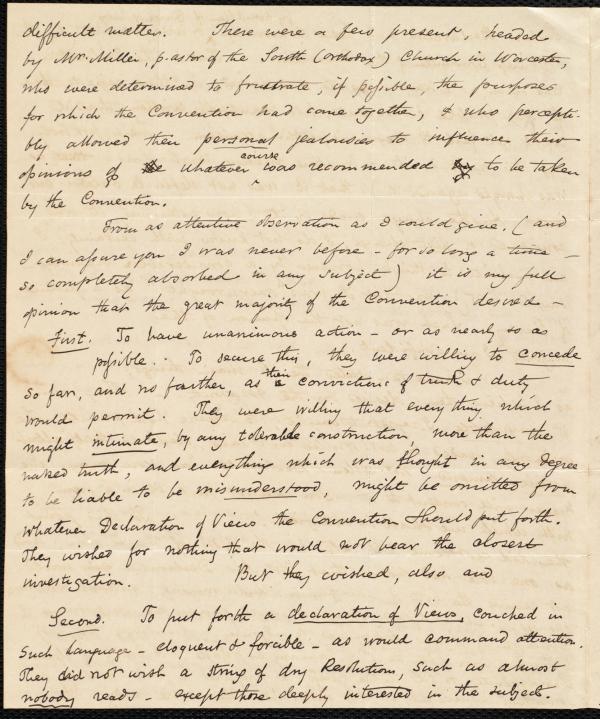 difficult matter. There were a few present, headed
by Mr. Miller, pastor of the South (orthodox) Church in Worcester,
who were determined to frustrate, if possible, the purposes
for which the Convention had come together, & who percepti-
bly allowed their personal jealousies to influence their
opinions of whatever course was recommended to be taken
by the Convention.
From as attentive observation as I could give, (and
I can assure you I was never before - for so long a time -
so completely absorbed in any subject) it is my full
opinion that the great majority of the Convention desired -
First. To have unanimous action - or as nearly so as
possible. - To secure this, they were willing to concede
so far, and no farther, as their convictions of truth & duty
would permit. They were willing that every thing which
might intimate, by any tolerable construction, more than the
naked truth, and everything which was thought in any degree
to be liable to be misunderstood, might be omitted from
whatever Declaration of Views the Convention should put forth.
They wished for nothing that would not bear the closest
investigation. But they wished, also and
Second. To put forth a declaration of Views, couched in
such language - eloquent & forcible - as would command attention.
They did not wish a string of dry Resolutions, such as almost
nobody reads - except those deeply interested in the subject.